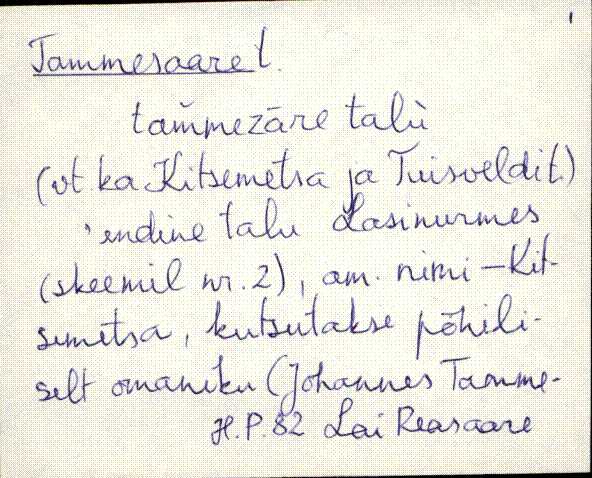 1
Tammesaare t.
tam̆mezāre talù
(vt ka Kitsemetsa ja Tuisveldit)
'endine talu Lasinurmes
(skeemil nr. 2), am. nimi – Kit-
semetsa, kutsutakse põhili-
selt omaniku (Johannes Tamme-
H.P. 82 Lai Reasaare